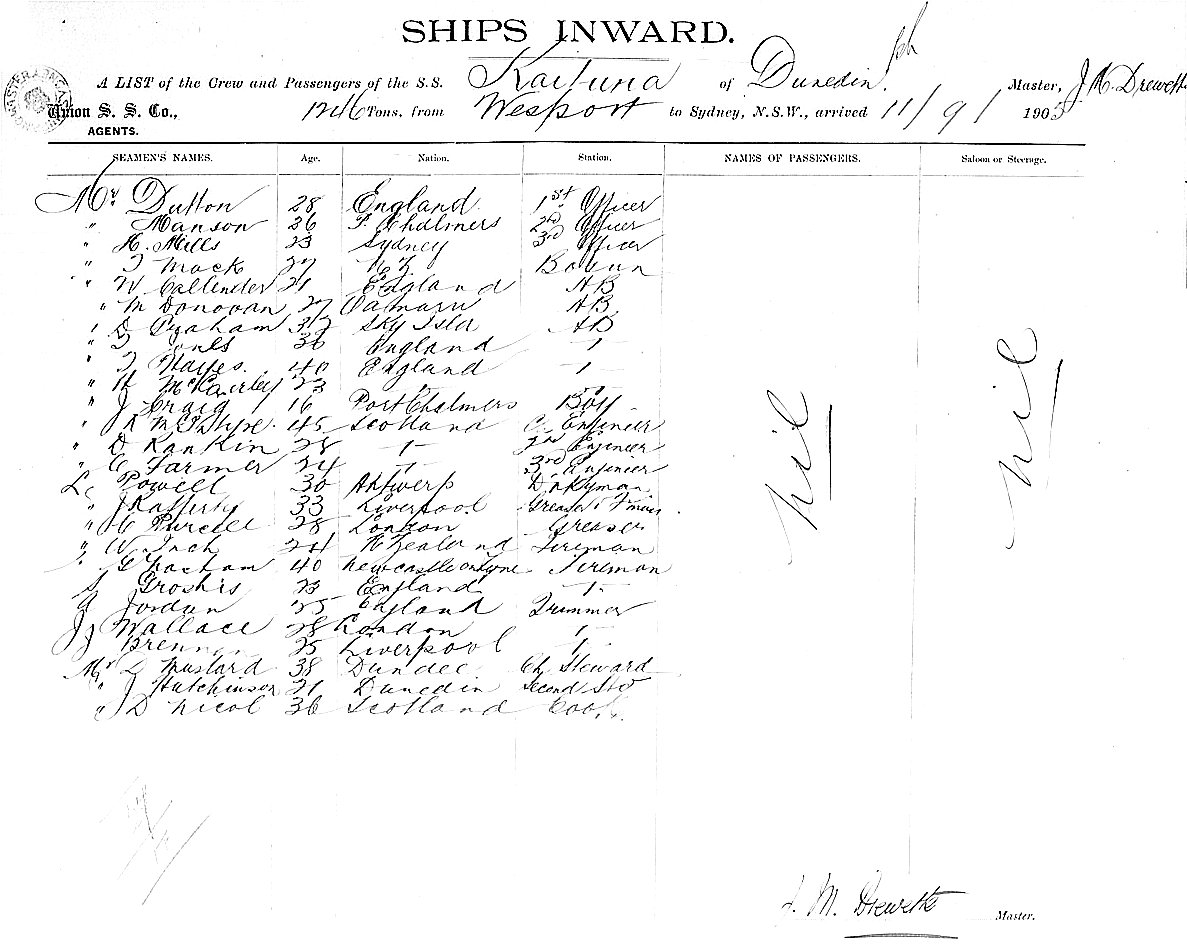 SHIPS INWARD.
A LIST of the Crew and Passengers of the S.S. Kaituna of Dunedin, Master, J M Drewett
Union S. S. Co., 1246 Tons, from Wesport to Sydney, N.S.W., arrived 11/9/ 1905
AGENTS.
SEAMEN'S NAMES. Age. Nation. Station. NAMES OF PASSENGERS. Saloon or Steerage.
Mr. Dutton 28 England 1st Officer
" Manson 26 P. Chalmers 2nd Officer
" H. Mills 23 Sydney 3rd Officer
" T Mack 27 N.Z.
" W Callender 21 England AB
" M Donovan 27 Oamaru AB
" D 32 Sky Isle AB
" Jones 30 England
" T Hayes. 40 England
" H 23
" J Craig 16 Port Chalmers Boy
" R McIntyre. 45 Scotland C. Engineer
" D Rankin 28 " 2nd Engineer
" C Farmer 24 " 3rd Engineer
Powell 30 Antwerp Dnkyman
" J Rafferty 33 Liverpool
" C Purcell 28 London Greaser
" W. Inch 24 N Zealand Fireman
40 Newcastle on Tyne Fireman
23 England
Jordan 25 England Trimmer
Wallace 28 London
Brennan 25 Liverpool
Mr L Mustard 38 Dundee Ch Steward
" J Hutchinson 21 Dunedin Second Std
" J D Nicol 36 Scotland Cook
nil nil
J. M. Drewett Master.